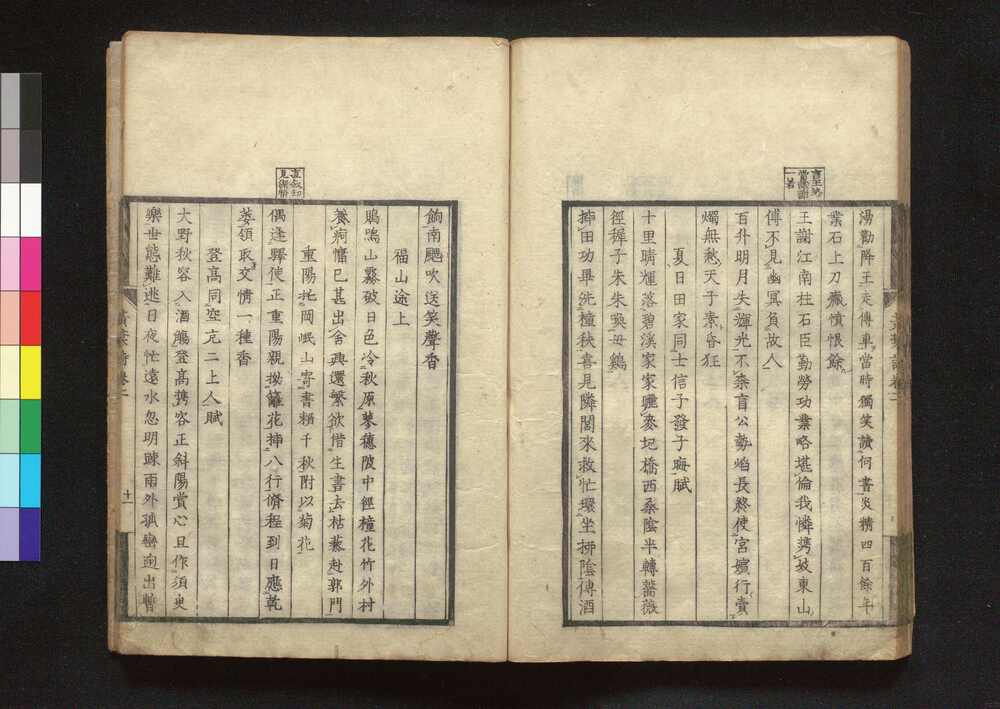 湯勸降王走傳車當時獨笑讀何書炎精四百餘年
業石上刀癥憤恨餘
王謝江南柱石臣勤勞功業略堪倫我憐携妓東山
傅不見幽冥負故人
百升明月失輝光不柰盲公勢焰長終使宮嬪行賣
燭無愁天子素昏狂
夏日田家同士信子發子晦賦
十里晴煇落碧溪家家曬麥圯橋西桑陰半轉薔薇
徑穉子朱朱喚母鷄
揷田功畢洗橦秧喜見隣閭來救忙環坐拂陰傳酒
餉南颸吹送笑聲香
福山途上
鵙鳴山霧破日色冷秋原蓼穗陂中徑橦花竹外村
養痾慵已甚出舍興還繁欲借生書去枯藜赴郭門
重陽托岡岷山寄書賴千秋附以菊花
偶逢驛使正重陽親拗籬花揷八行脩程到日應乾
萎領取交情一種香
登高同空亢二上人賦
大野秋容入酒觴登高携客正斜陽賞心且作須臾
樂世態難逃日夜忙遠水忽明踈雨外孤巒逈出暫
十一